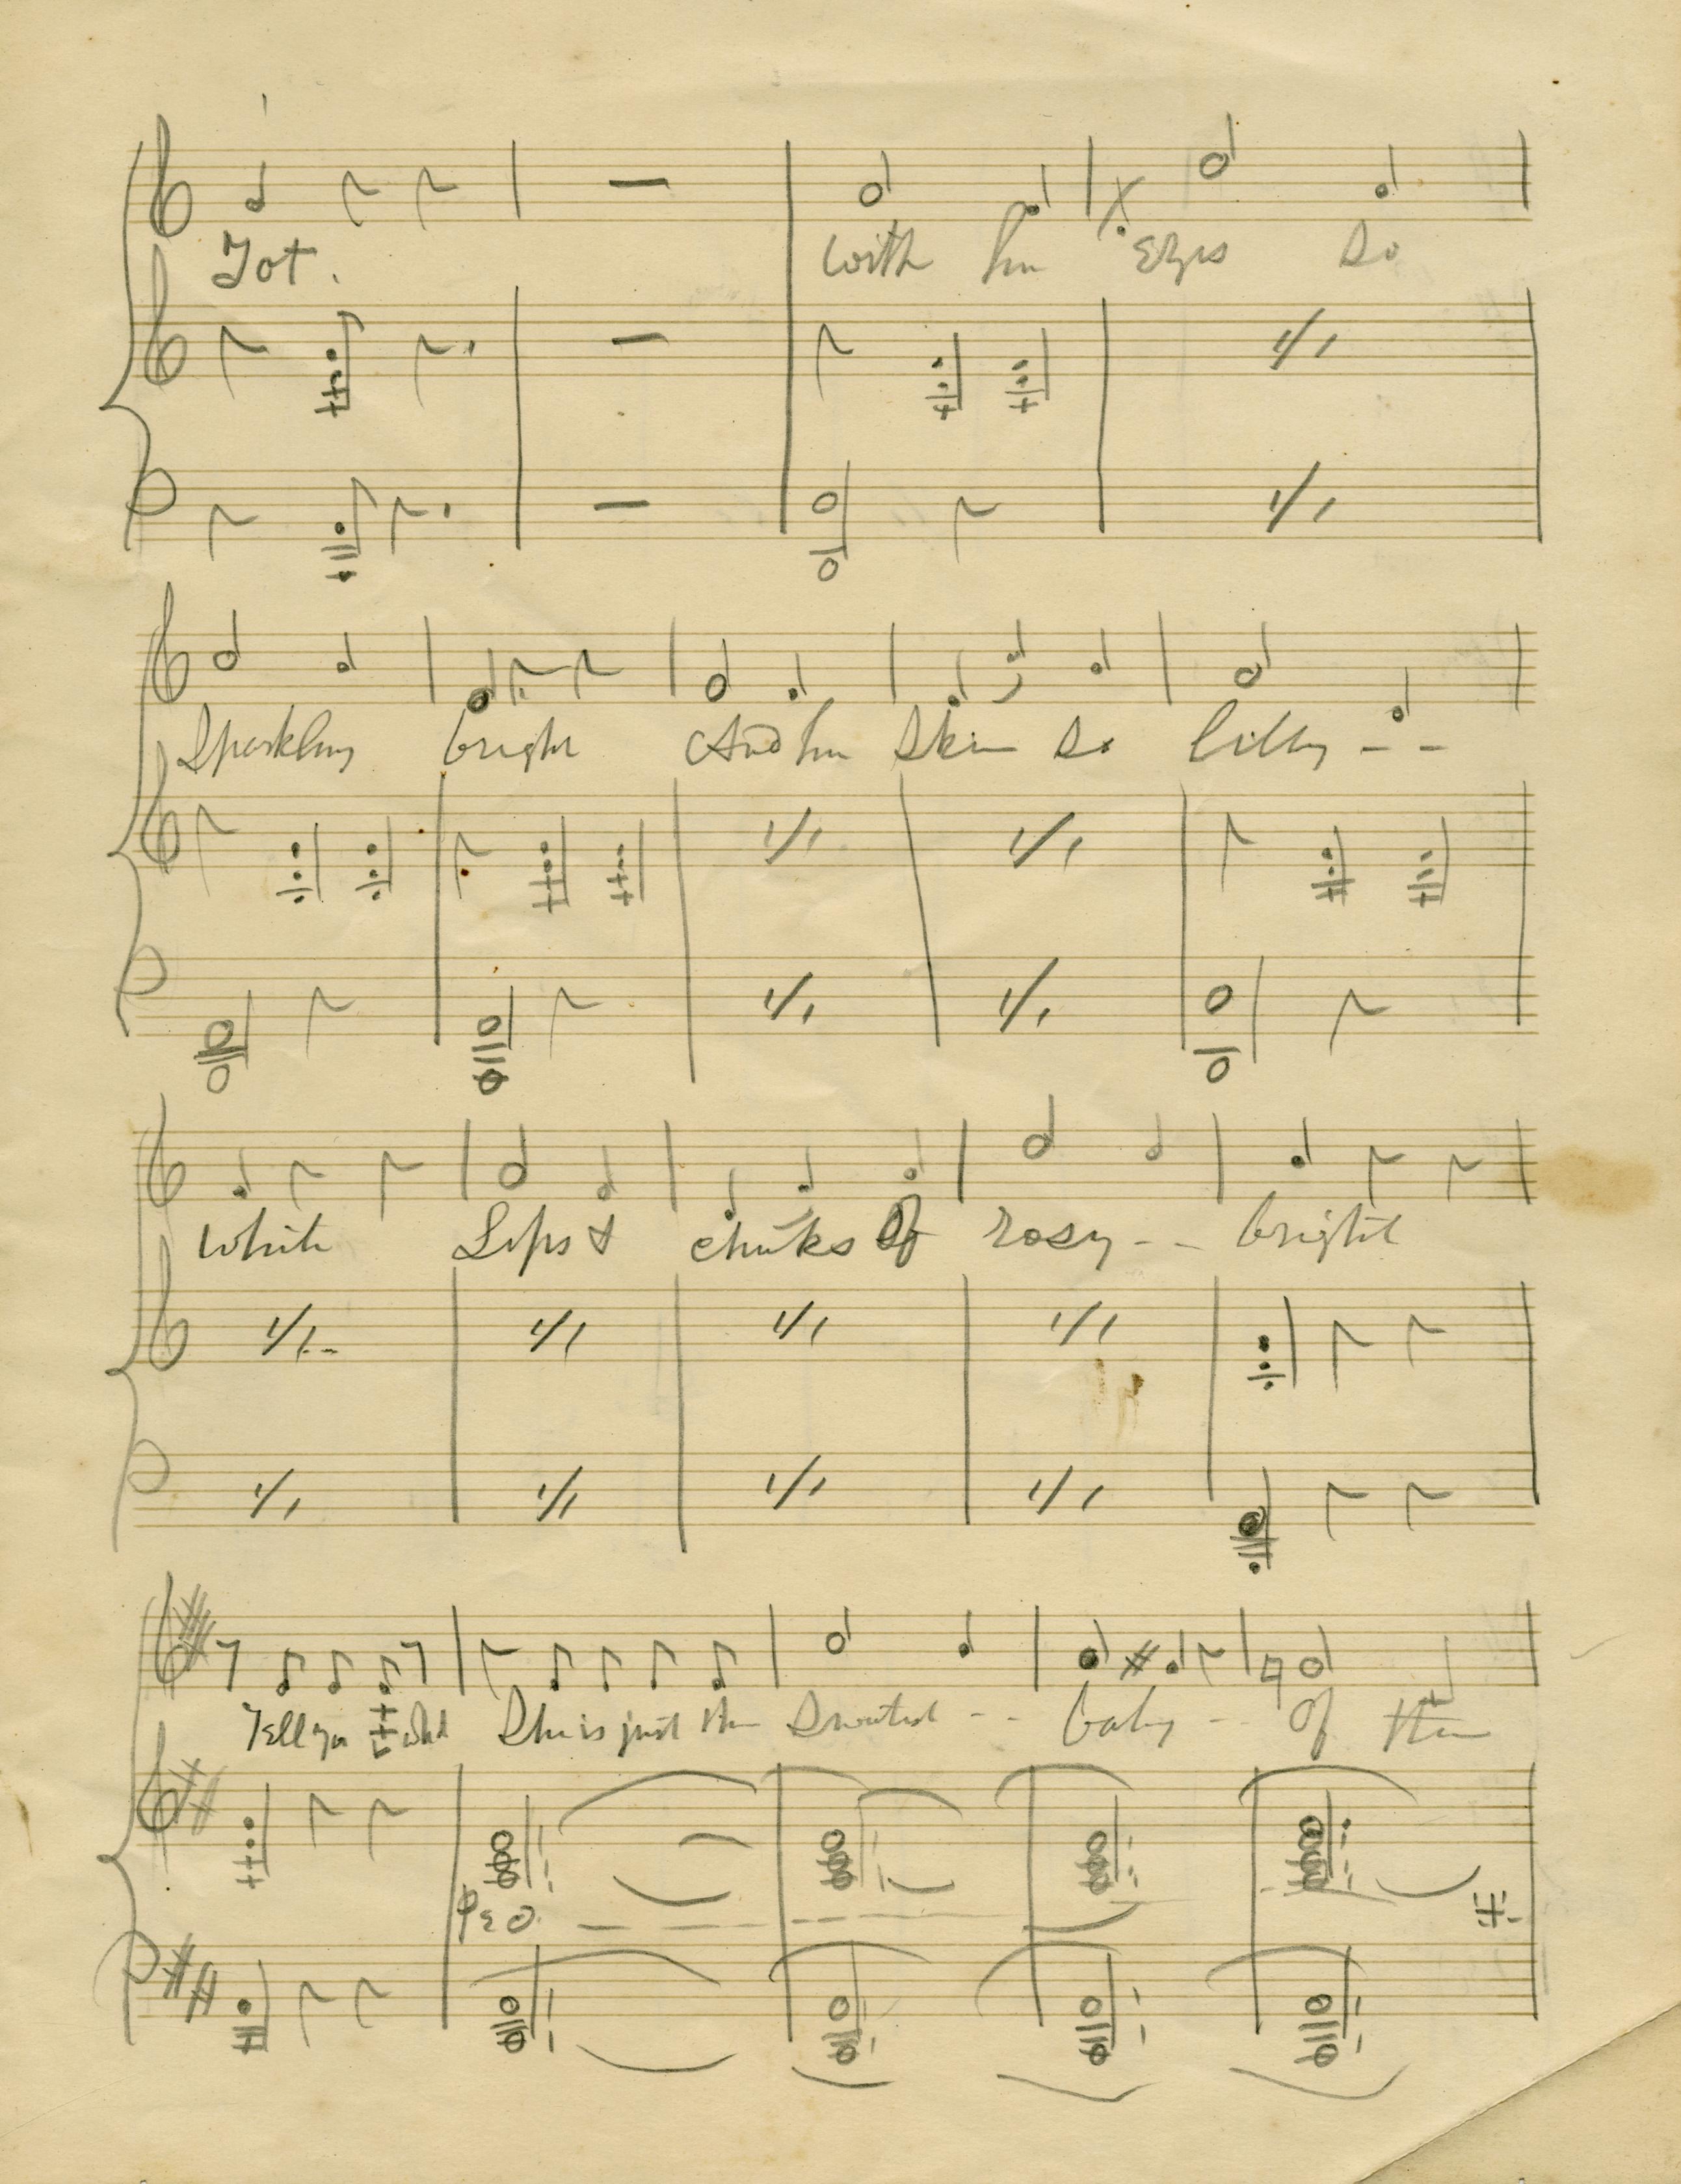 Tot. With her Eyes So
Sparkling bright And her Skin So lilly --
White Lips & cheeks of rosy -- bright
Tell you what She is just the Sweetest -- baby -- of them
Ped.